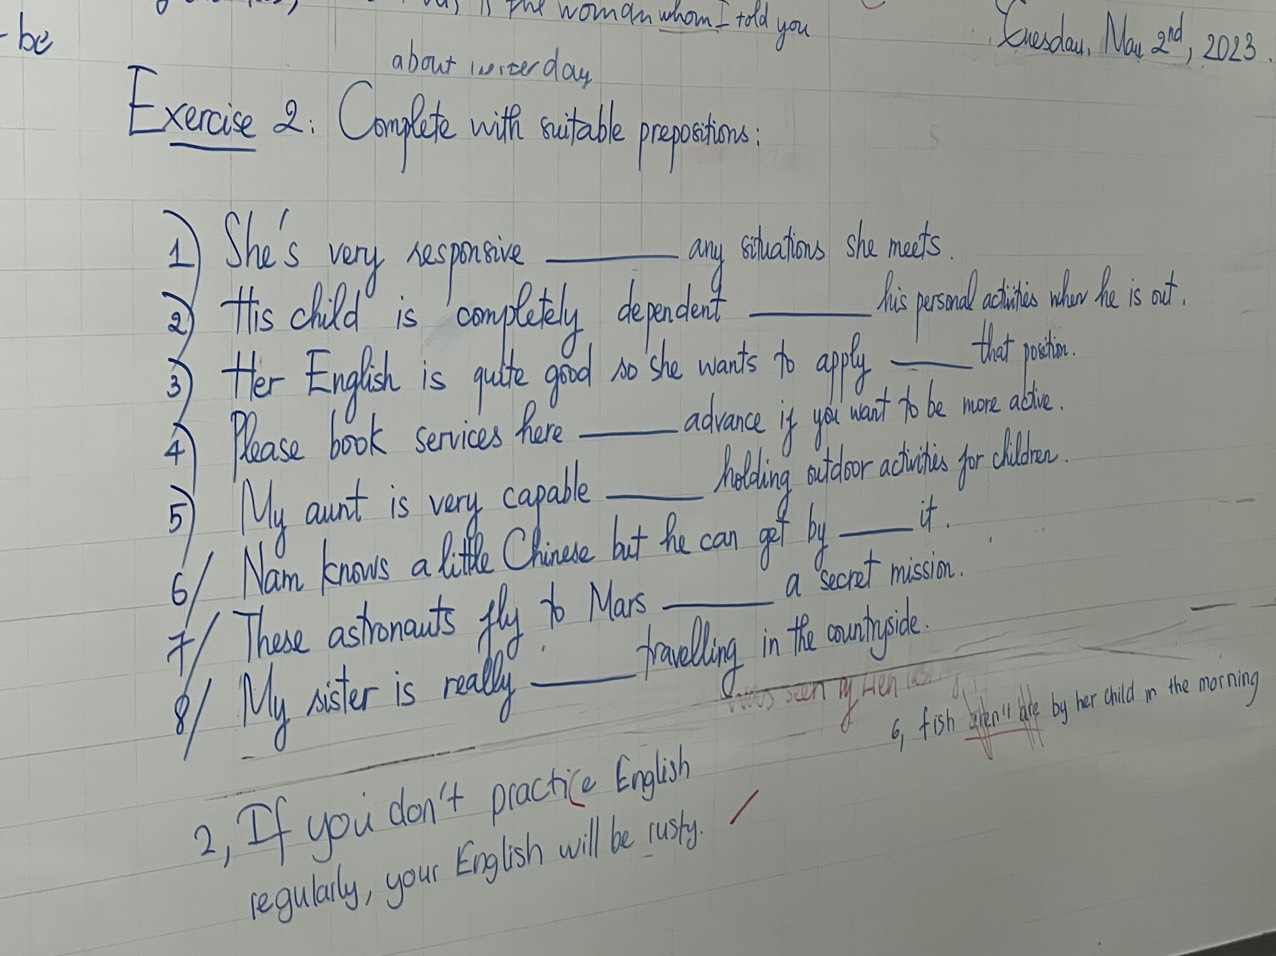 is the woman whom I told you
- be
Tuesday, May 2nd, 2023.
about
Exercise 2: Complete with suitable prepositions:
1) She's very responsive ______ any situations she meets.
2) His child is completely dependent ______ his personal activities when he is out.
3) Her English is quite good so she wants to apply ______ that position.
4) Please book services here ______ advance if you want to be more active.
5) My aunt is very capable ______ holding outdoor activities for children.
6/ Nam knows a little Chinese but he can get by ______ it.
7/ These astronauts fly to Mars ______ a secret mission.
8/ My sister is really ______ travelling in the countryside.
was seen by
6, fish by her child in the morning
2, If you don't practice English
regularly, your English will be rusty.